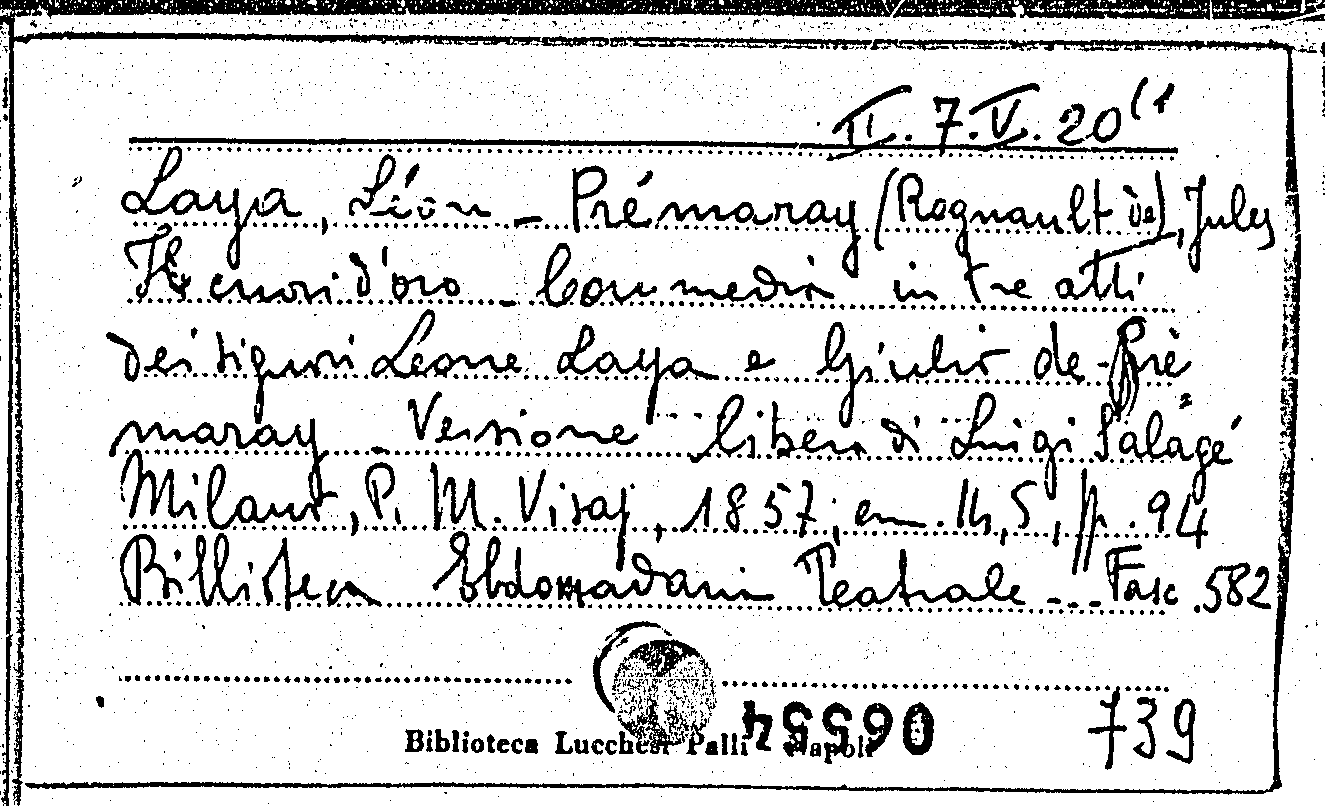 II. 7. V. 20 (1
Laya, Léon - Prémaray (Regnault de), Jules
cuori d'oro - Commedia in tre atti
dei signori Leone Laya e Giulio de Pré
maray - Versione libera di Luigi Salagé
Milano, P. M. Visaj, 1857, cm. 14,5, pp. 94
Biblioteca Ebdomadaria Teatrale - Fasc. 582
Biblioteca Lucchesi Palli Napoli
06554
739